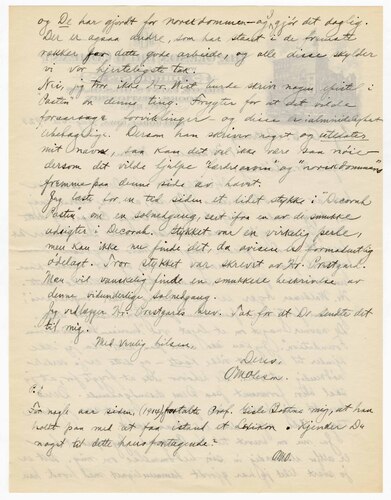 og De har gjordt for norskdommen - og gjør det daglig.
Der er ogsaa andre, som har staat i de forreste
rækker for dette gode arbeide, og alle disse skylder
vi vor hjerteligste tak.
Nei, jeg tror ikke Hr. Wist burde skrive noget i
"Posten" om denne ting. Frygter for at det vilde
foraarsage forviklinger - og disse er i almindelighet
ubehagelige. Dersom han skriver noget og utelater
mit navn, saa kan det vel ikke være saa nøie -
dersom det vilde hjelpe "fædrearven" og "norskdommens"
fremme paa denne side av havet.
Jeg læste for en tid siden et litet stykke i "Decorah
Posten" om en solnedgang, seet fra en av de smukke
utsigter i Decorah. Stykket var en virkelig perle,
men kan ikke nu finde det, da avisen blev formodentlig
ødelagt. Tror stykket var skrevet av Hr. Prestgard.
Man vil vanskelig finde en smukkere beskrivelse av
denne vidunderlige solnedgang.
Jeg vedlægger Hr. Prestgards brev. Tak for at De sendte det
til mig.
Med venlig hilsen,
Deres,
OMOleson.
P.S.
For nogle aar siden, (1914) fortalte Prof. Gisle Bothne mig, at han
holdt paa med at faa istand et Lexikon. Kjender De
noget til dette hans foretagende?
OMO.